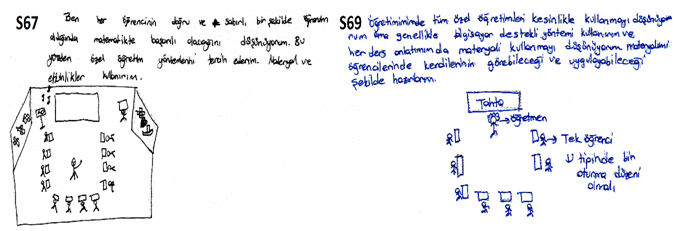 S67 Ben her öğrencinin doğru ve sabırlı bir şekilde öğrenim
aldığında matematikte başarılı olacağını düşünüyorum. Bu
yüzden özel öğretim yöntemlerini tercih ederim. Materyal ve
etkinlikler kullanırım.
S69 Öğretimimde tüm özel öğretimleri kesinlikle kullanmayı düşünüyo
rum ama genellikle bilgisayar destekli yöntemi kullanırım ve
her ders anlatımında materyali kullanmayı düşünüyorum. materyalimi
öğrencilerinde kendilerinin görebileceği ve uygulayabileceği
şekilde hazırlarım.
Tahta
öğretmen
Tek öğrenci
U tipinde bir
oturma düzeni
olmalı